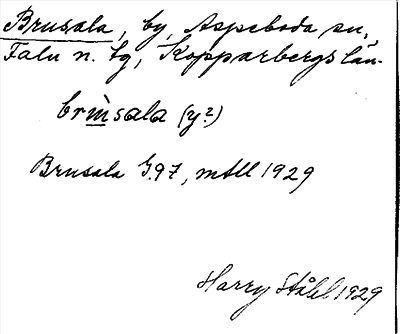 Brusala, by, Aspeboda sn,
Falu n. tg, Kopparbergs län.
brùsala (y?)
Brusala G.97, mtll 1929
Harry Ståhl 1929